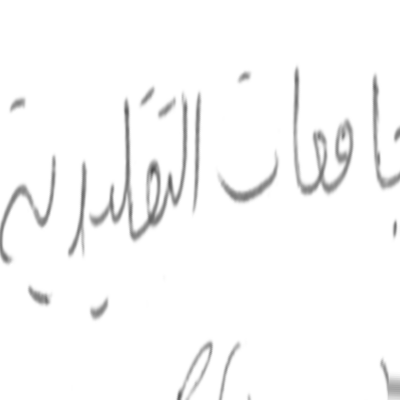 جامعات التقليدية